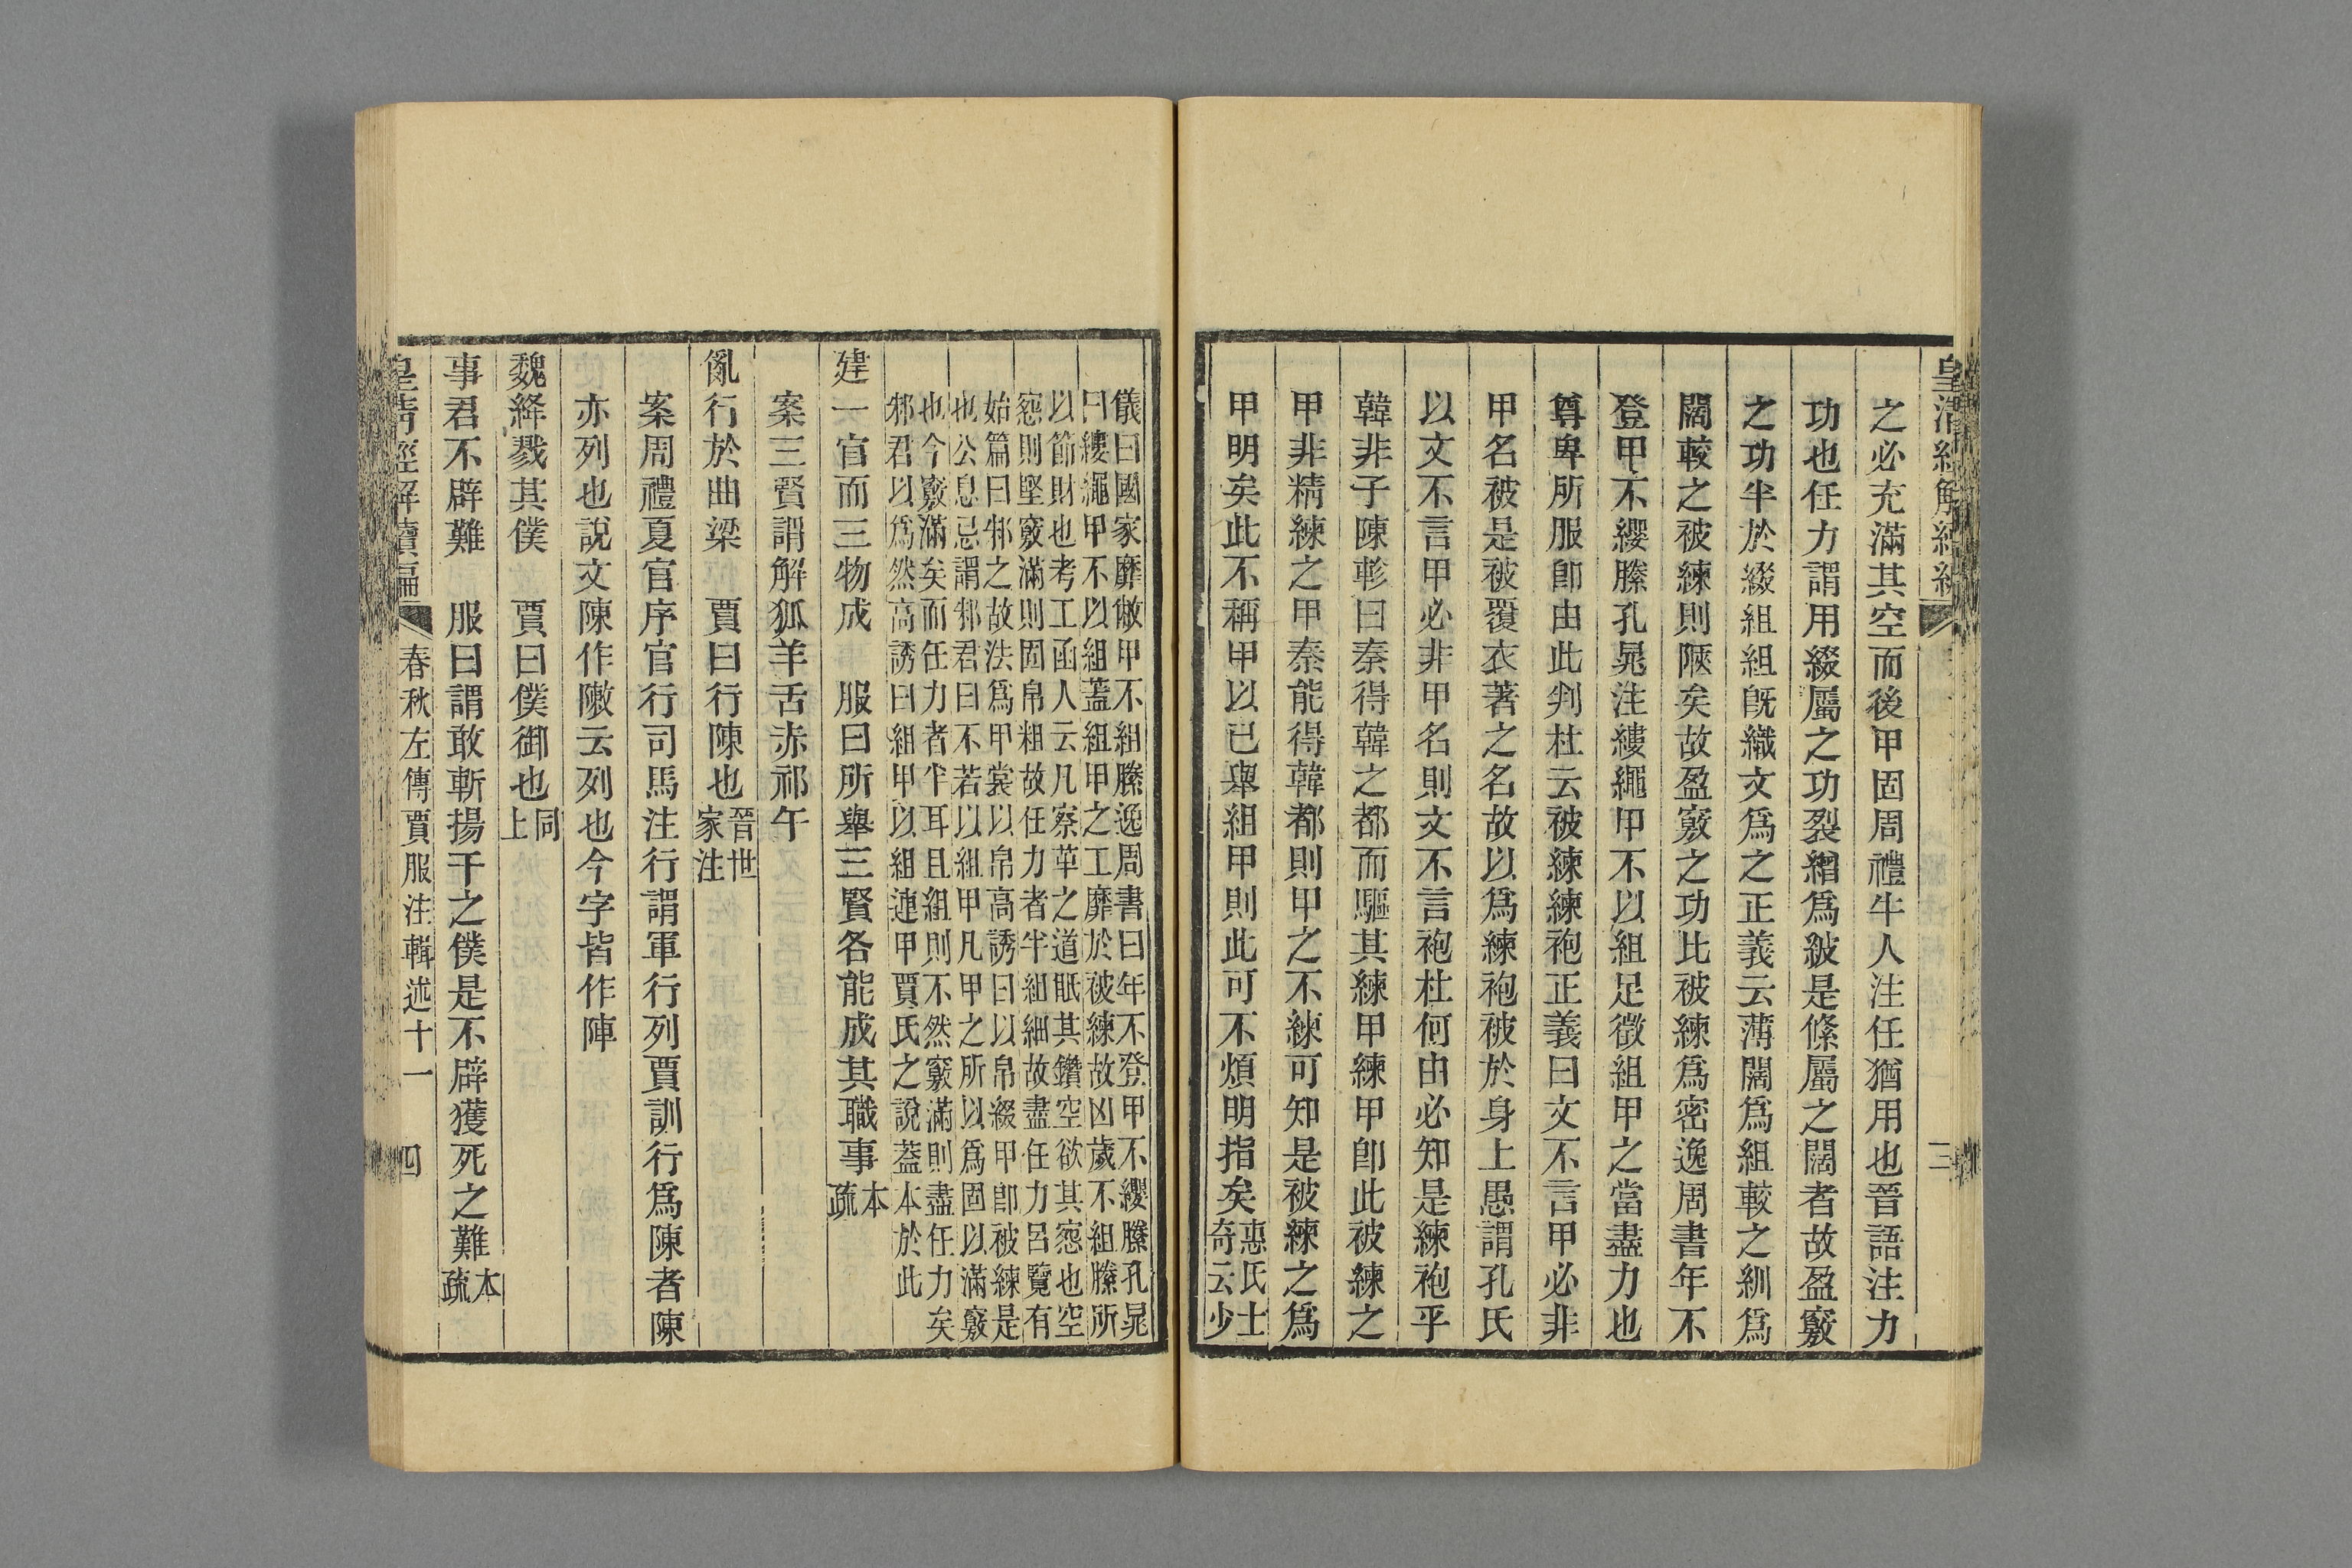 之必充滿其空而後甲固周禮牛人注任猶用也晉語注力
功也任力謂用綴屬之功裂繒爲紴是絛屬之闊者故盈竅
之功半於綴組組旣織文爲之正義云薄闊爲組較之紃爲
闊較之被練則陿矣故盈竅之功比被練爲密逸周書年不
登甲不纓縢孔晁注縷繩甲不以組足徵組甲之當盡力也
尊卑所服卽由此判杜云被練練袍正義曰文不言甲必非
甲名被是被覆衣著之名故以爲練袍被於身上愚謂孔氏
以文不言甲必非甲名則文不言袍杜何由必知是練袍乎
韓非子陳軫曰秦得韓之都而驅其練甲練甲卽此被練之
甲非精練之甲秦能得韓都則甲之不練可知是被練之爲
甲明矣此不稱甲以已舉組甲則此可不煩明指矣惠氏士
奇云少
儀曰國家靡敝甲不組縢逸周書曰年不登甲不纓縢孔晁
曰縷繩甲不以組蓋組甲之工靡於被練故凶歲不組縢所
以節財也考工函人云凡察革之道眡其鑽空欲其惌也空
惌則堅竅滿則固帛粗故任力者半組細故盡任力呂覽有
始篇曰邾之故法爲甲裳以帛高誘曰以帛綴甲卽被練是
也公息忌謂邾君曰不若以組甲凡甲之所以爲固以滿竅
也今竅滿矣而任力者半耳且組則不然竅滿則盡任力矣
邾君以爲然高誘曰組甲以組連甲賈氏之說蓋本於此
建一官而三物成　服曰所舉三賢各能成其職事本
疏
案三賢謂解狐羊舌赤祁午
亂行於曲梁　賈曰行陳也晉世
家注
案周禮夏官序官行司馬注行謂軍行列賈訓行爲陳者陳
亦列也說文陳作敶云列也今字皆作陣
魏絳戮其僕　賈曰僕御也同
上
事君不辟難　服曰謂敢斬揚干之僕是不辟獲死之難本
疏
皇清經解續編　春秋左傳賈服注輯述十一　四